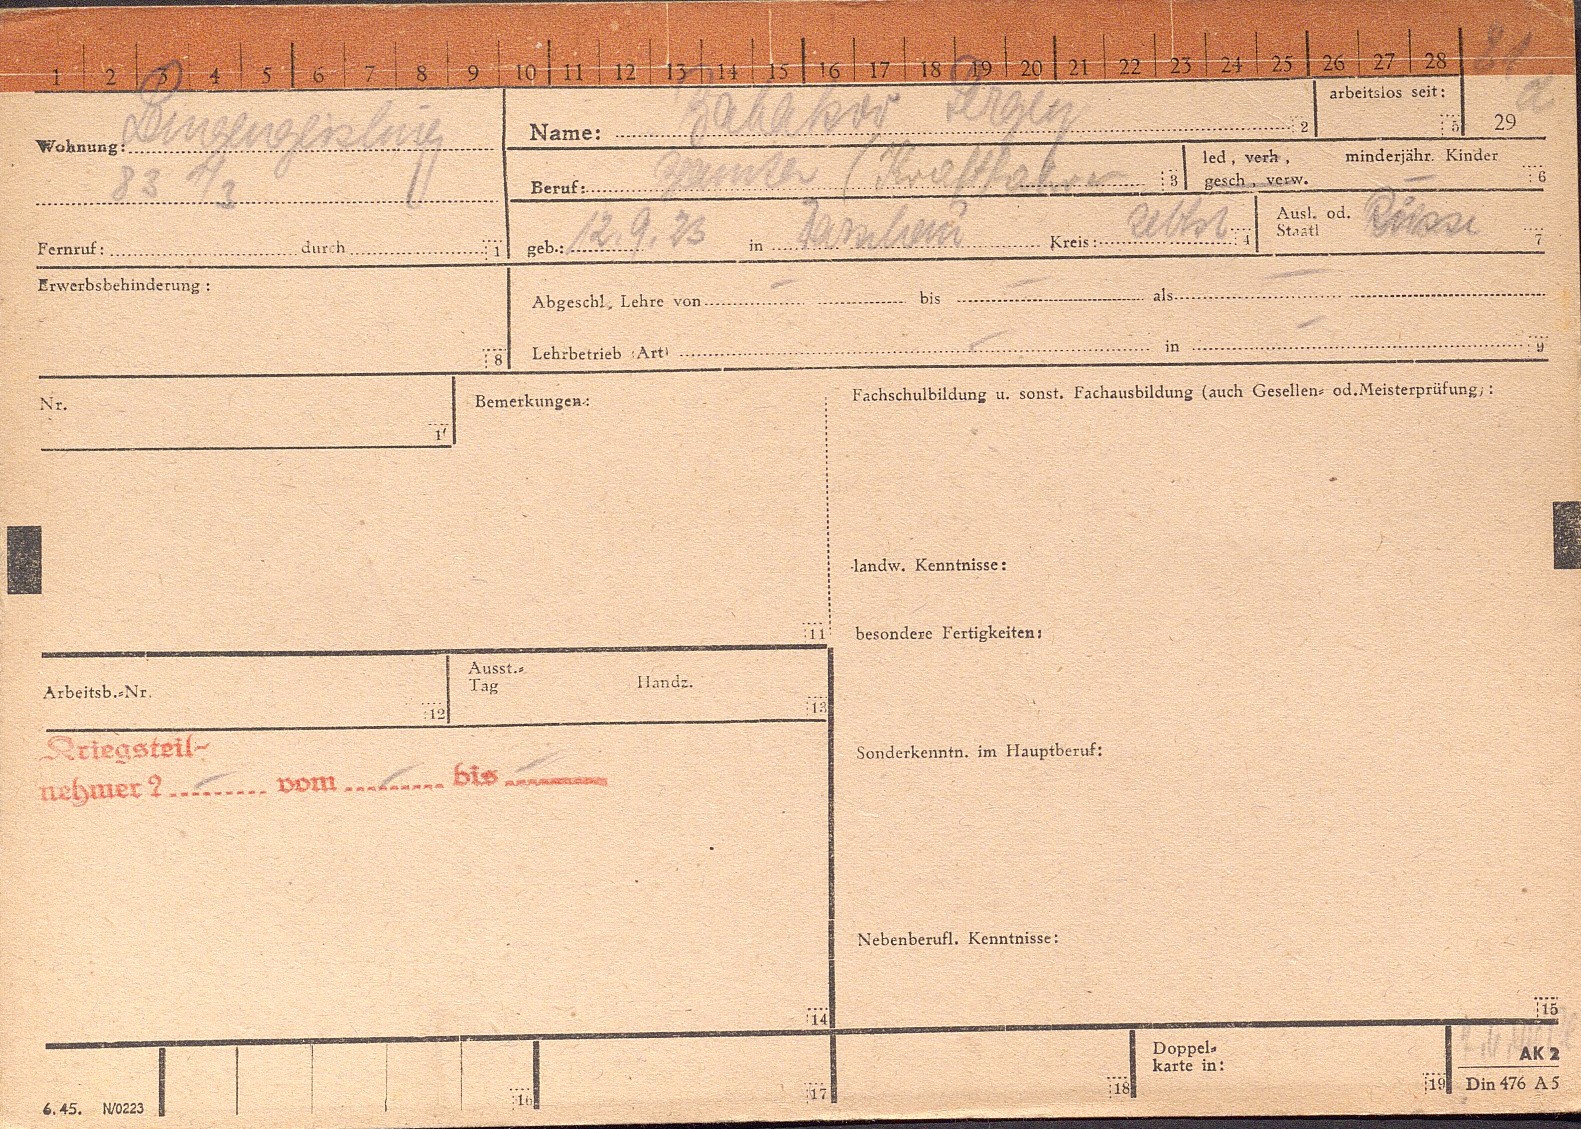 1 2 3 4 5 6 7 8 9 10 11 12 13 14 15 16 17 18 19 20 21 22 23 24 25 26 27 28
Wohnung:
83
Fernruf: durch 1
Name: 2
arbeitslos seit: 5
29
Beruf: (Kraftfahrer 3
led, verh, minderjähr. Kinder
gesch, verw. 6
geb.: 12.9.23 in Kreis: selbst 4
Ausl. od. Russe
Staatl 7
Erwerbsbehinderung:
8
Abgeschl. Lehre von bis als
Lehrbetrieb (Art) in 9
Nr.
1
Bemerkungen:
11
Fachschulbildung u. sonst. Fachausbildung (auch Gesellen= od.Meisterprüfung):
landw. Kenntnisse:
besondere Fertigkeiten:
Arbeitsb.=Nr. 12
Ausst.=
Tag Handz. 13
Kriegsteil-
nehmer? vom bis
14
Sonderkenntn. im Hauptberuf:
Nebenberufl. Kenntnisse:
15
16
17
18
Doppel=
karte in: 19
AK 2
Din 476 A 5
6.45. N/0223